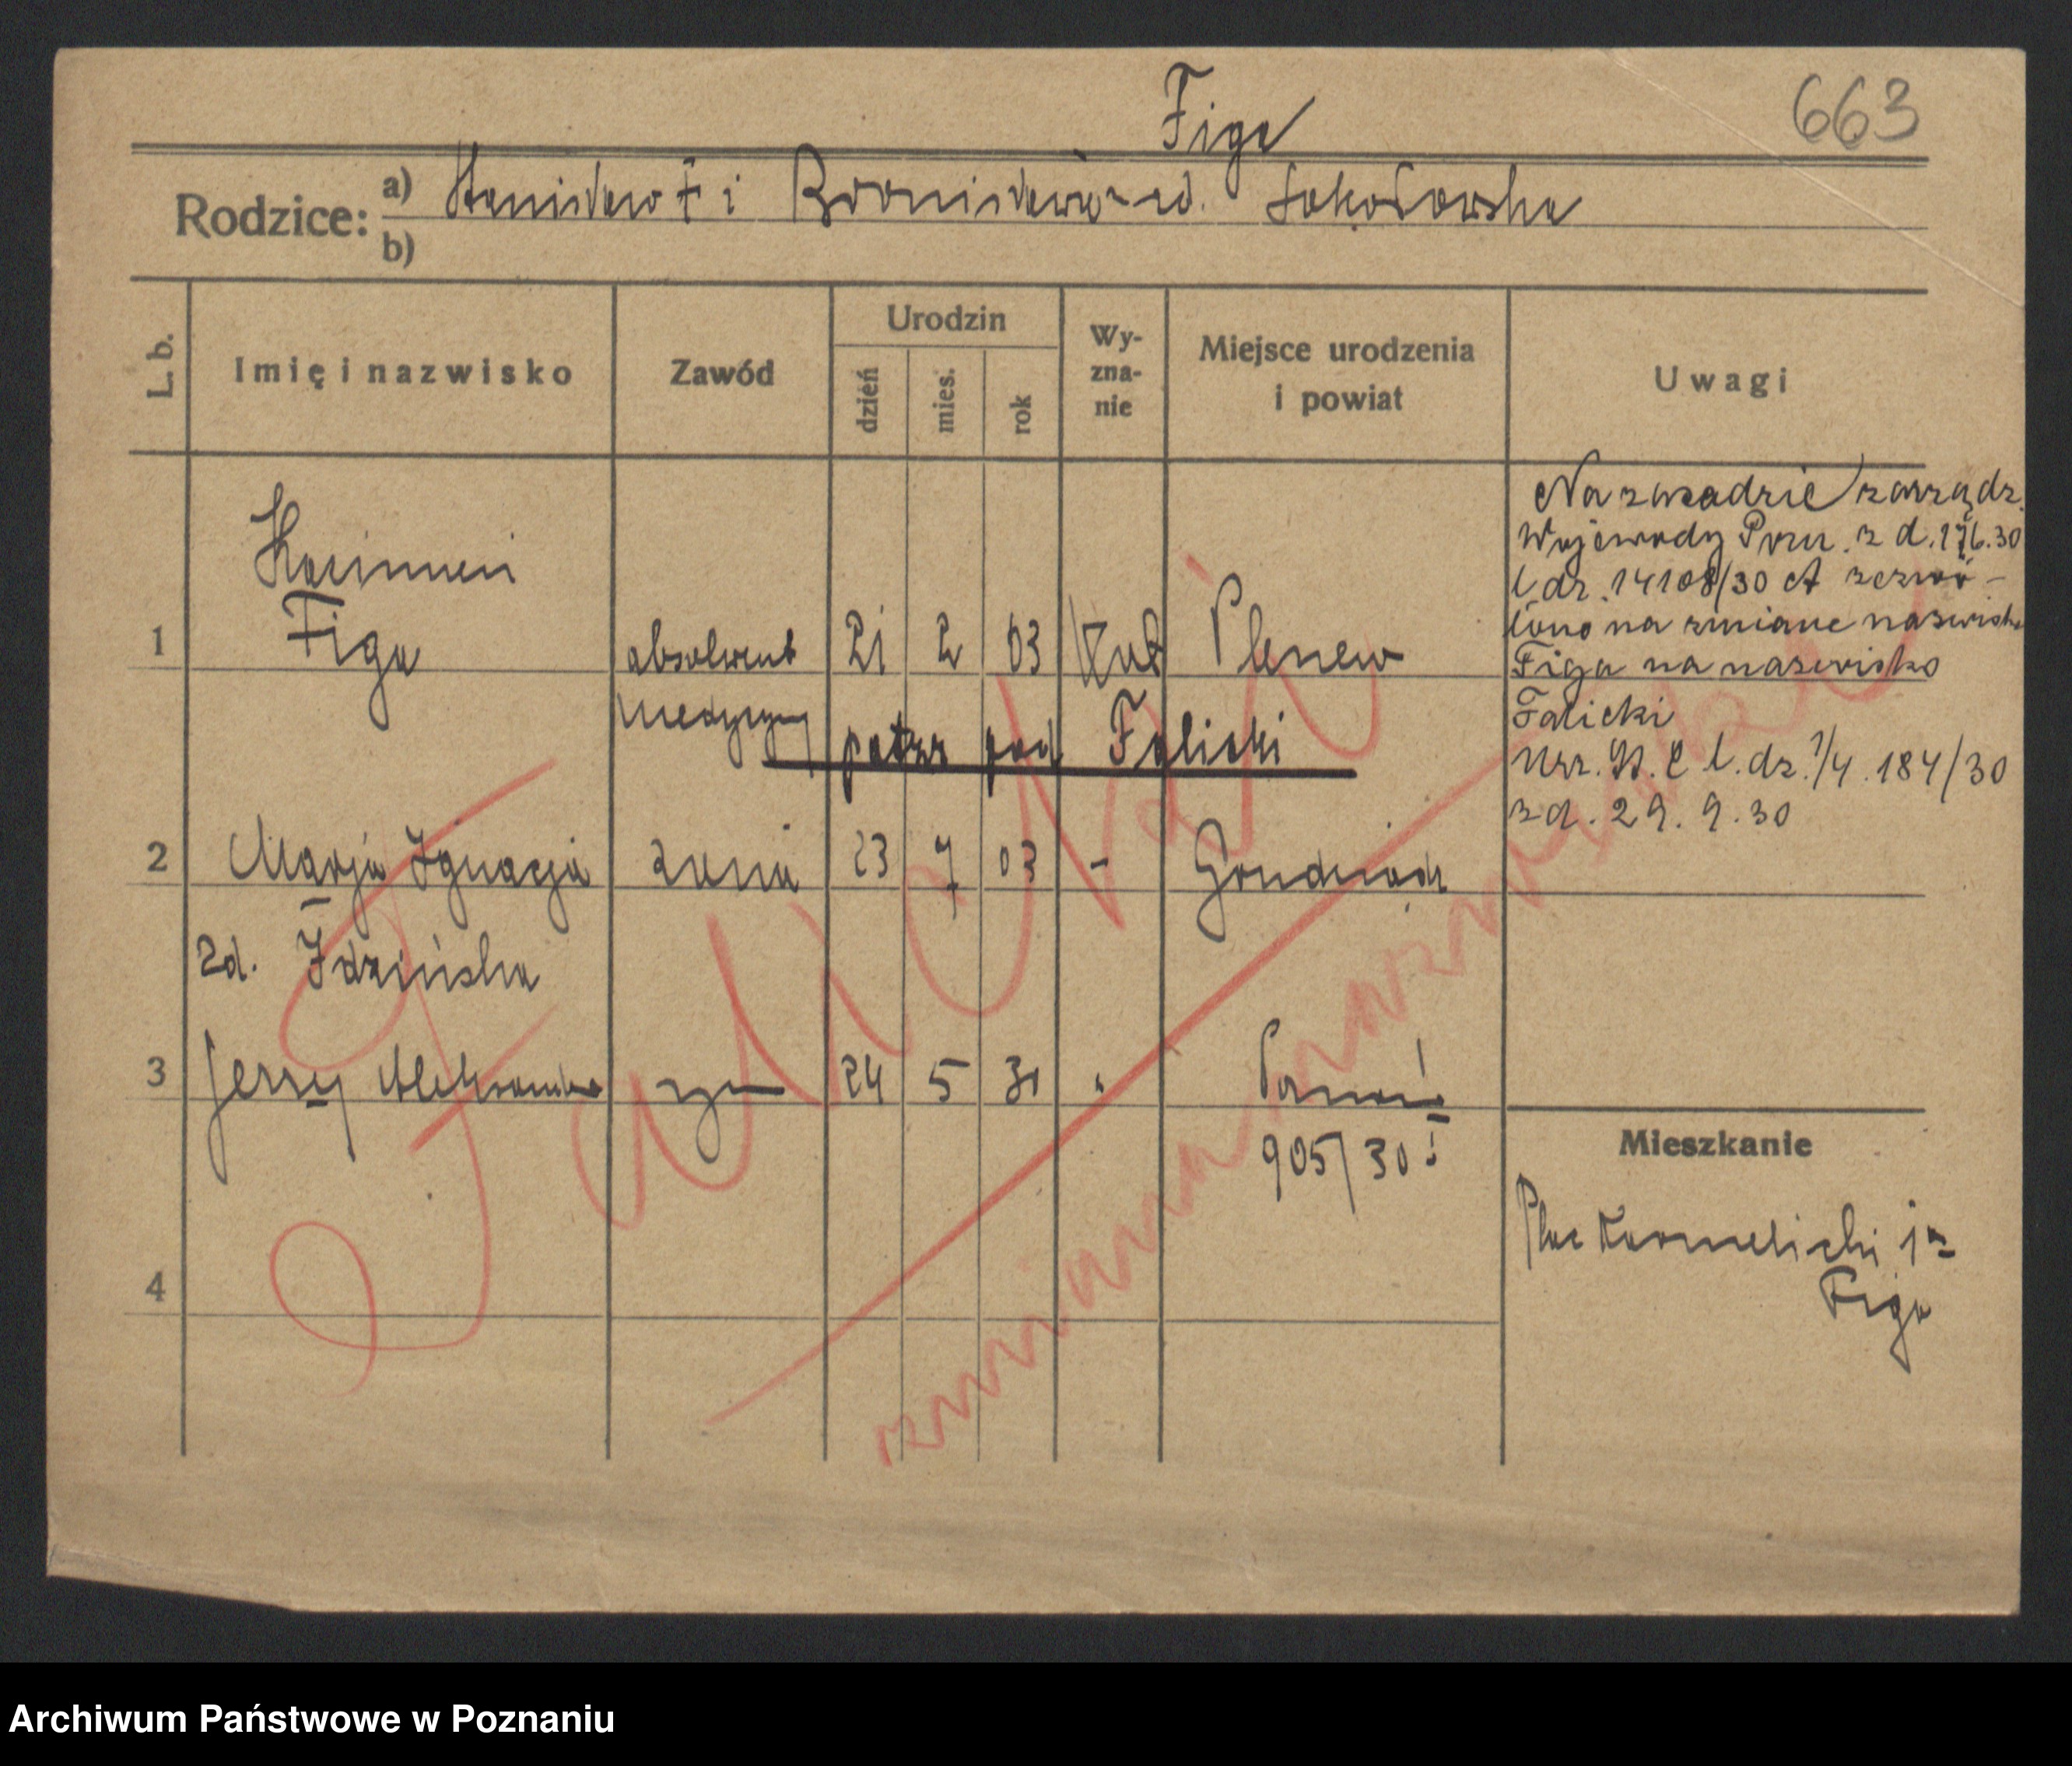 Figa
663
Rodzice: a) Stanisław † i Bronisława zd. Sokołowska
b)
L. b.
Imię i nazwisko
Zawód
Urodzin
dzień
mies.
rok
Wy-
zna-
nie
Miejsce urodzenia
i powiat
Uwagi
1 Kazimierz
Figa absolwent 21 2 03 Kat Plenew
medycyny
patrz pod Falicki
Na zasadzie zarządz.
Wojewody Pozn. z d. 17.6.30
l dz. 14108/30 A zezwo-
lono na zmianę nazwiska
Figa na nazwisko
Falicki
l. dz. 184/30
z d. 29. 9. 30
2 Marja Ignacja żona 23 7 03 - Grudziądz
zd. Idzińska
3 Jerzy Aleksander syn 24 5 30 " Poznań
905/30 I
4
Mieszkanie
Plac Karmelicki 1a
Figa
Falicki
zmiana nazwiska
Archiwum Państwowe w Poznaniu